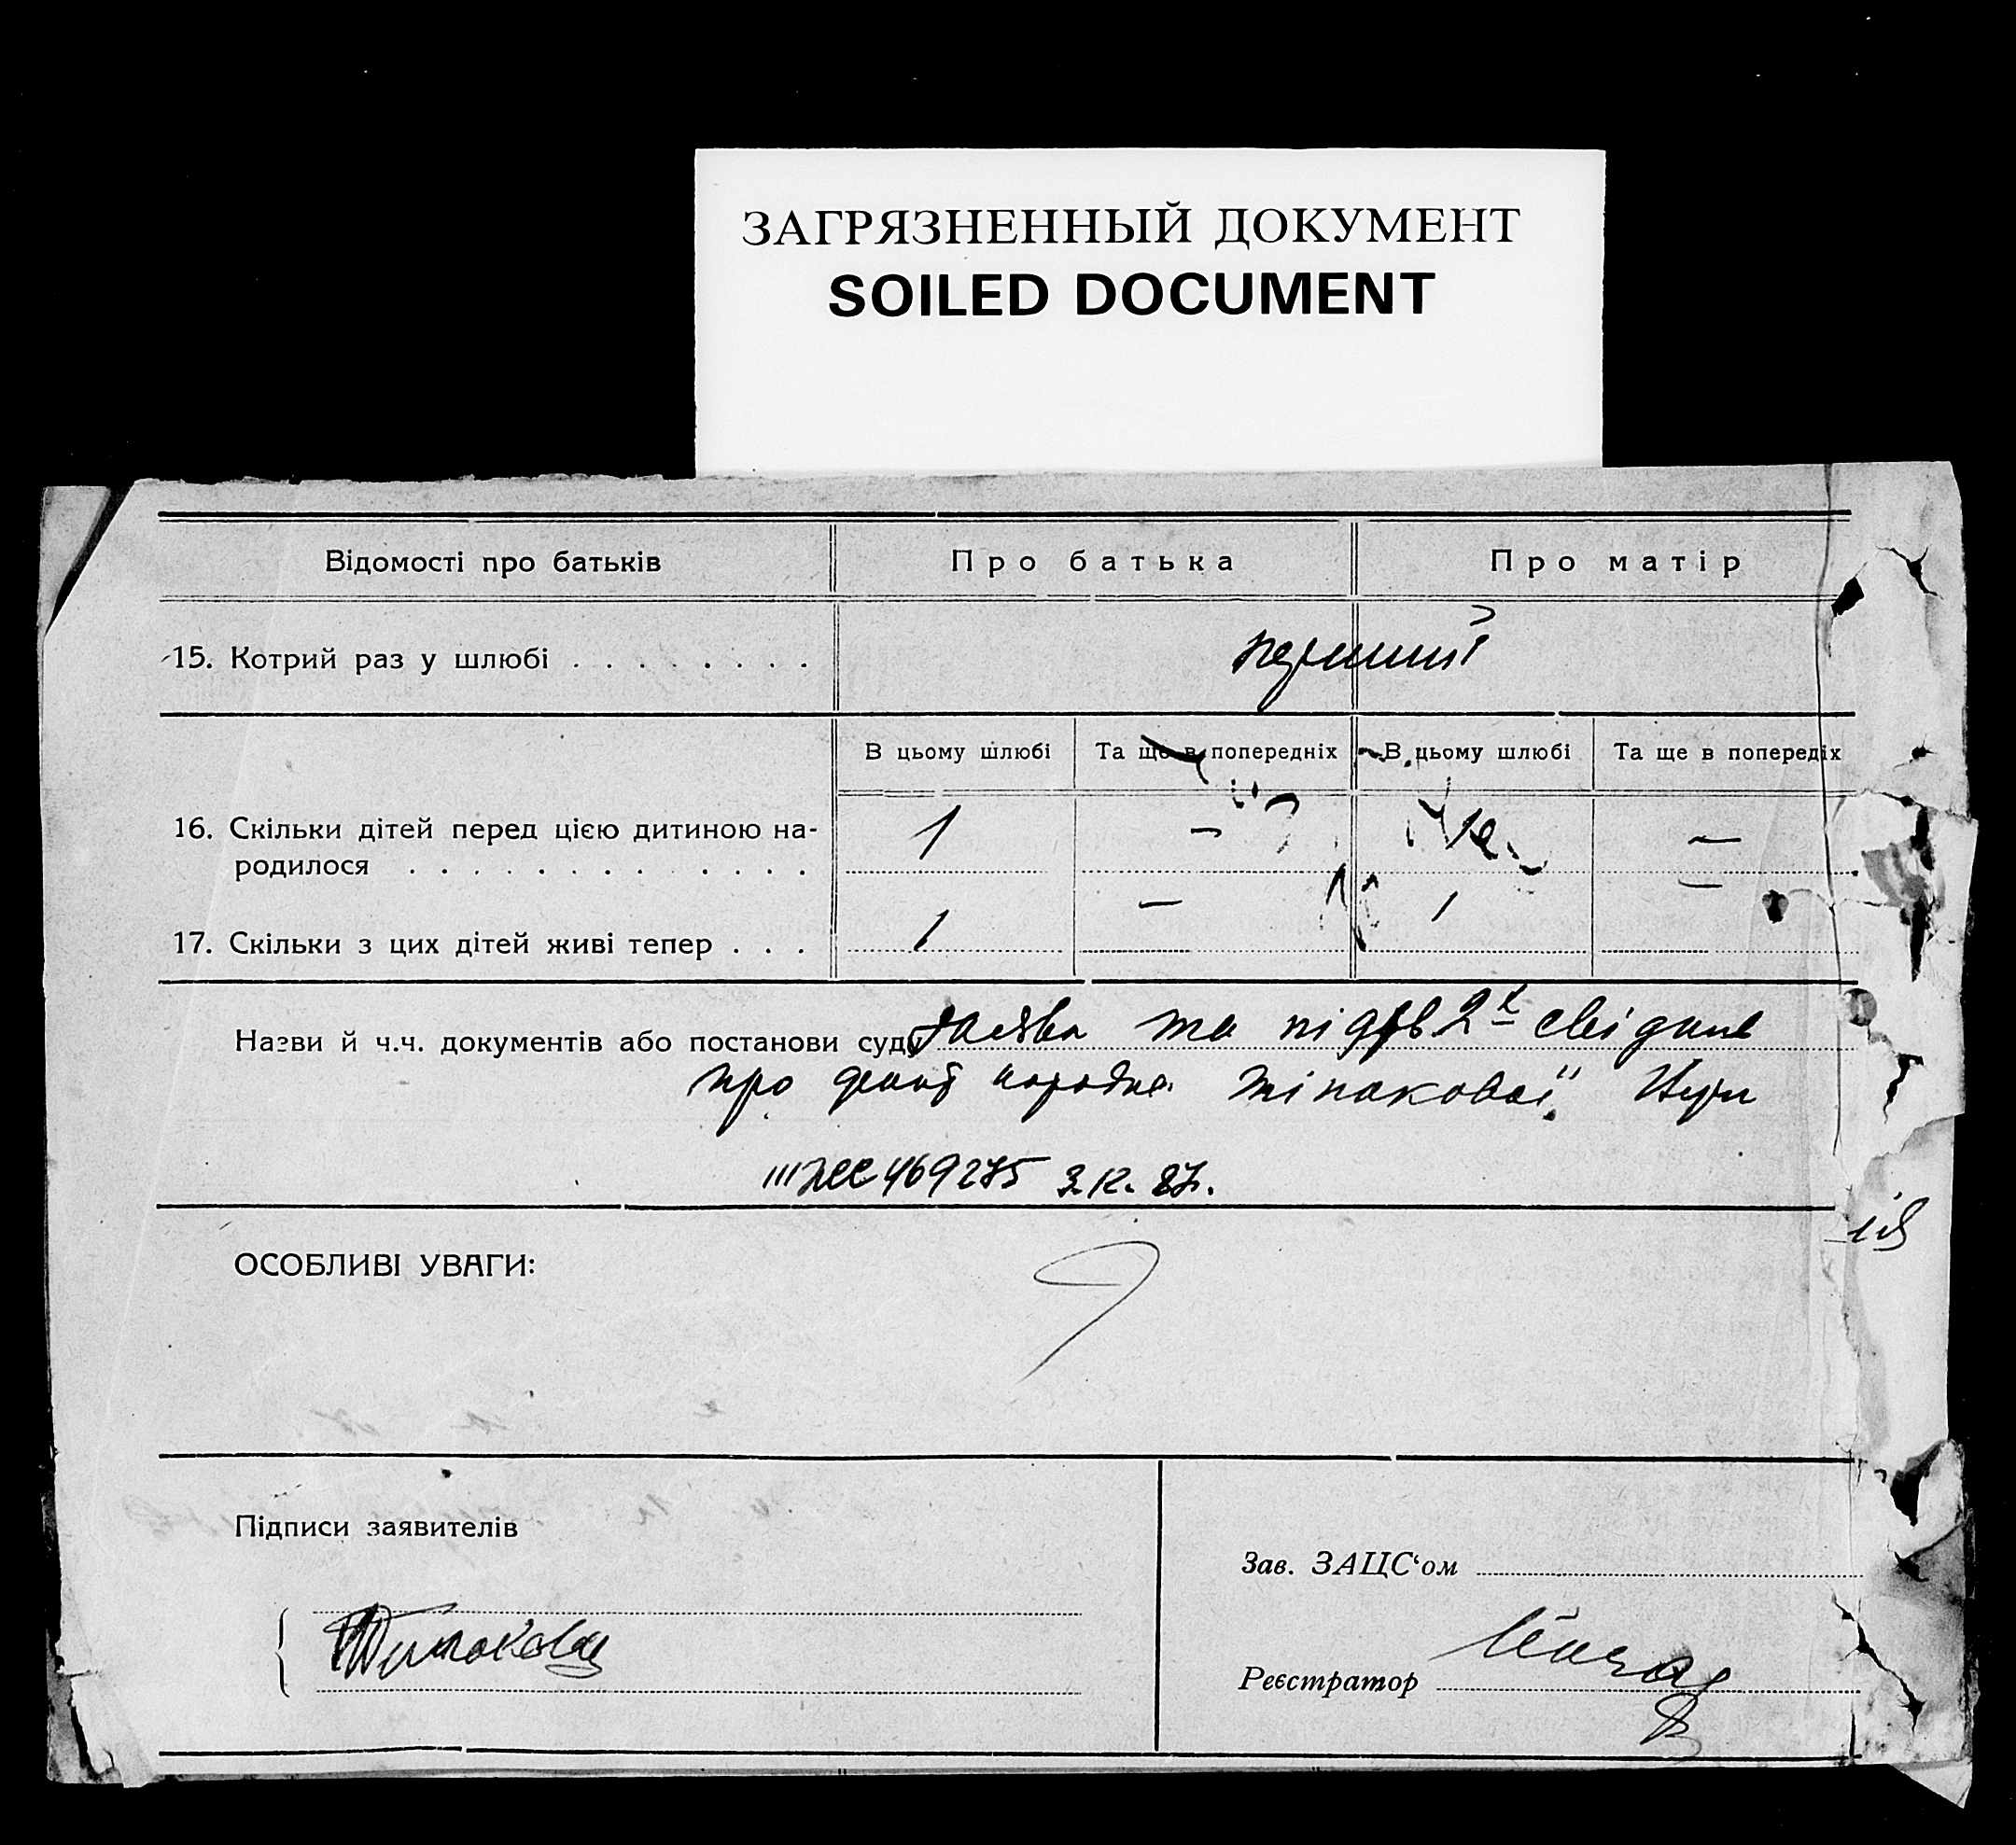 ЗАГРЯЗНЕННЫЙ ДОКУМЕНТ
SOILED DOCUMENT
Відомості про батьків Про батька Про матір
15. Котрий раз у шлюбі . . . . . . . . перший
В цьому шлюбі Та ще в попередніх В цьому шлюбі Та ще в попередіх
16. Скільки дітей перед цією дитиною на-
родилося . . . . . . . . . . . . . 1 — 1 —
17. Скільки з цих дітей живі тепер . . . 1 — 1 —
Назви й ч.ч. документів або постанови суду заява та 2х свідків
про Тіпакової
469275
ОСОБЛИВІ УВАГИ:
Підписи заявителів
Зав. ЗАЦС‘ом
Реєстратор